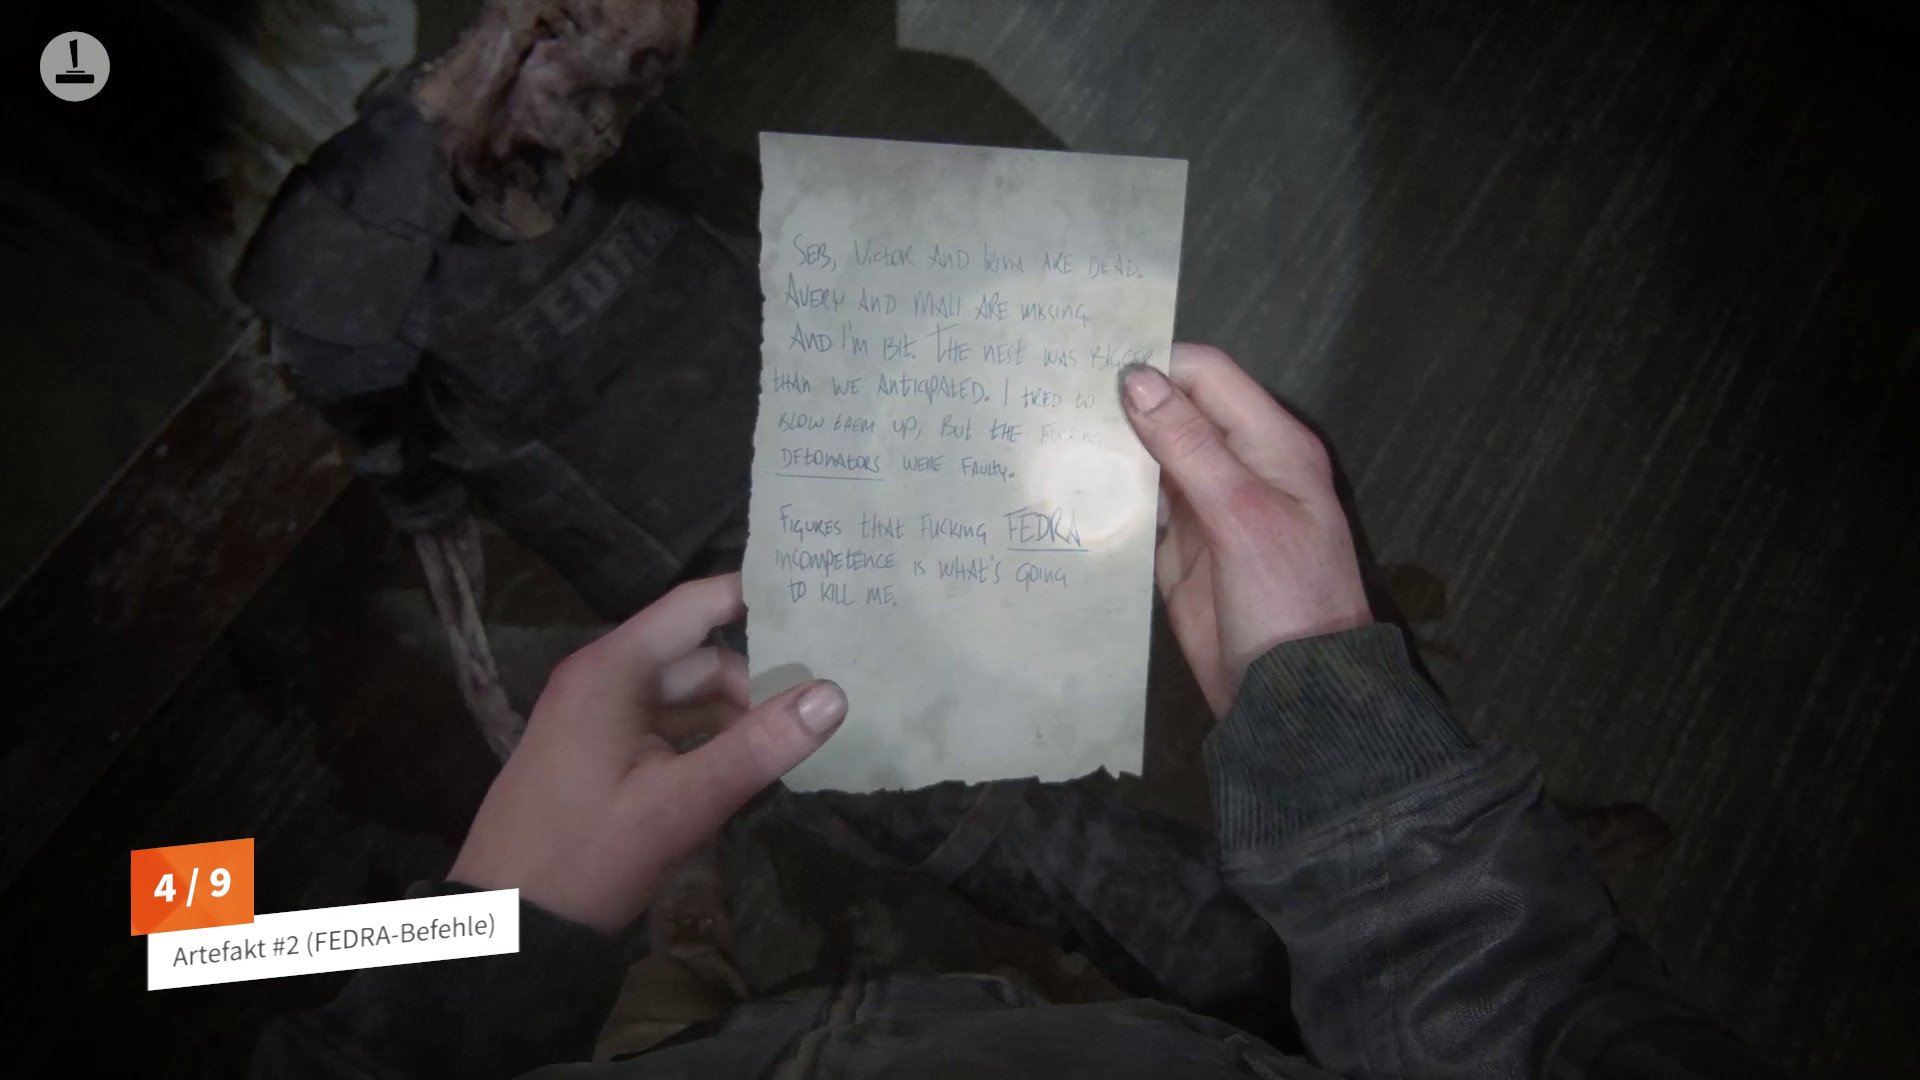 FEDRA
Seb, Victor and Irina are dead.
Avery and Mali are missing.
And I'm bit. The nest was bigger
than we anticipated. I tried to
blow them up, but the fucking
detonators were faulty.
Figures that fucking FEDRA
incompetence is what's going
to kill me.
4 / 9
Artefakt #2 (FEDRA-Befehle)